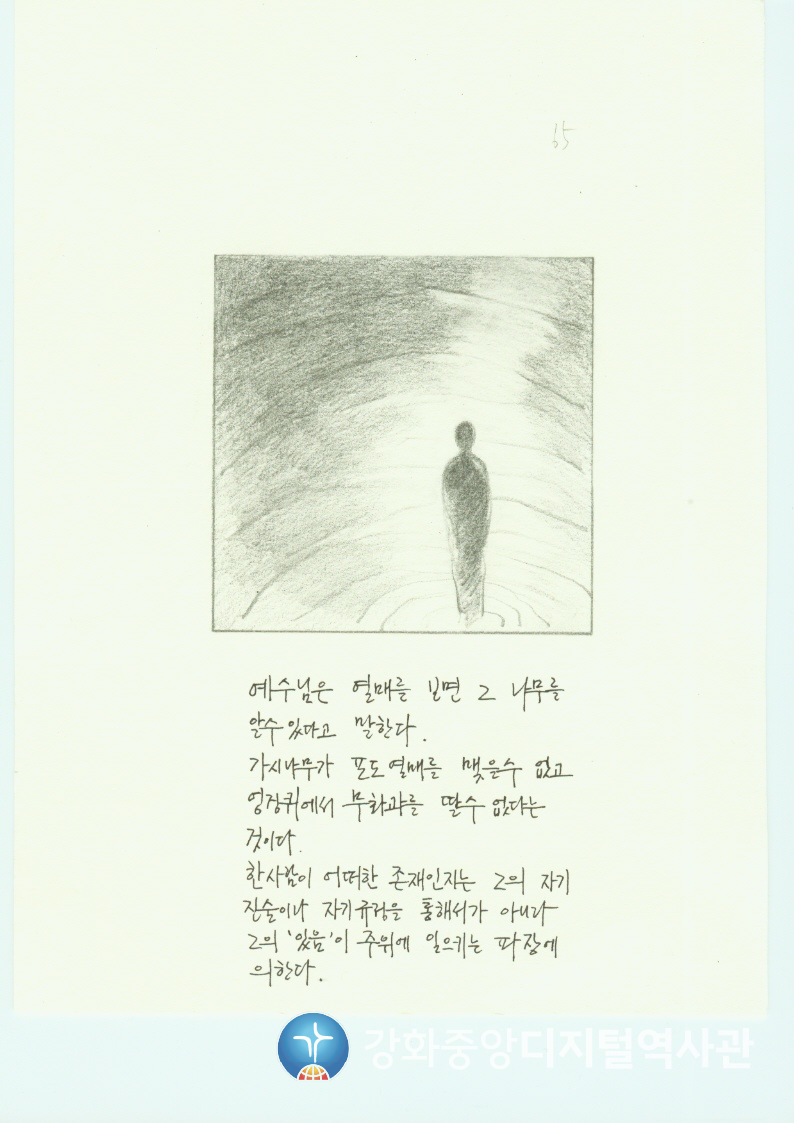 65
예수님은 열매를 보면 그 나무를
알수있다고 말한다.
가시나무가 포도열매를 맺을수 없고
엉겅퀴에서 무화과를 딸수 없다는
것이다.
한사람이 어떠한 존재인지는 그의 자기
진술이나 자기규정을 통해서가 아니라
그의 '있음'이 주위에 일으키는 파장에
의한다.
강화중앙디지털역사관